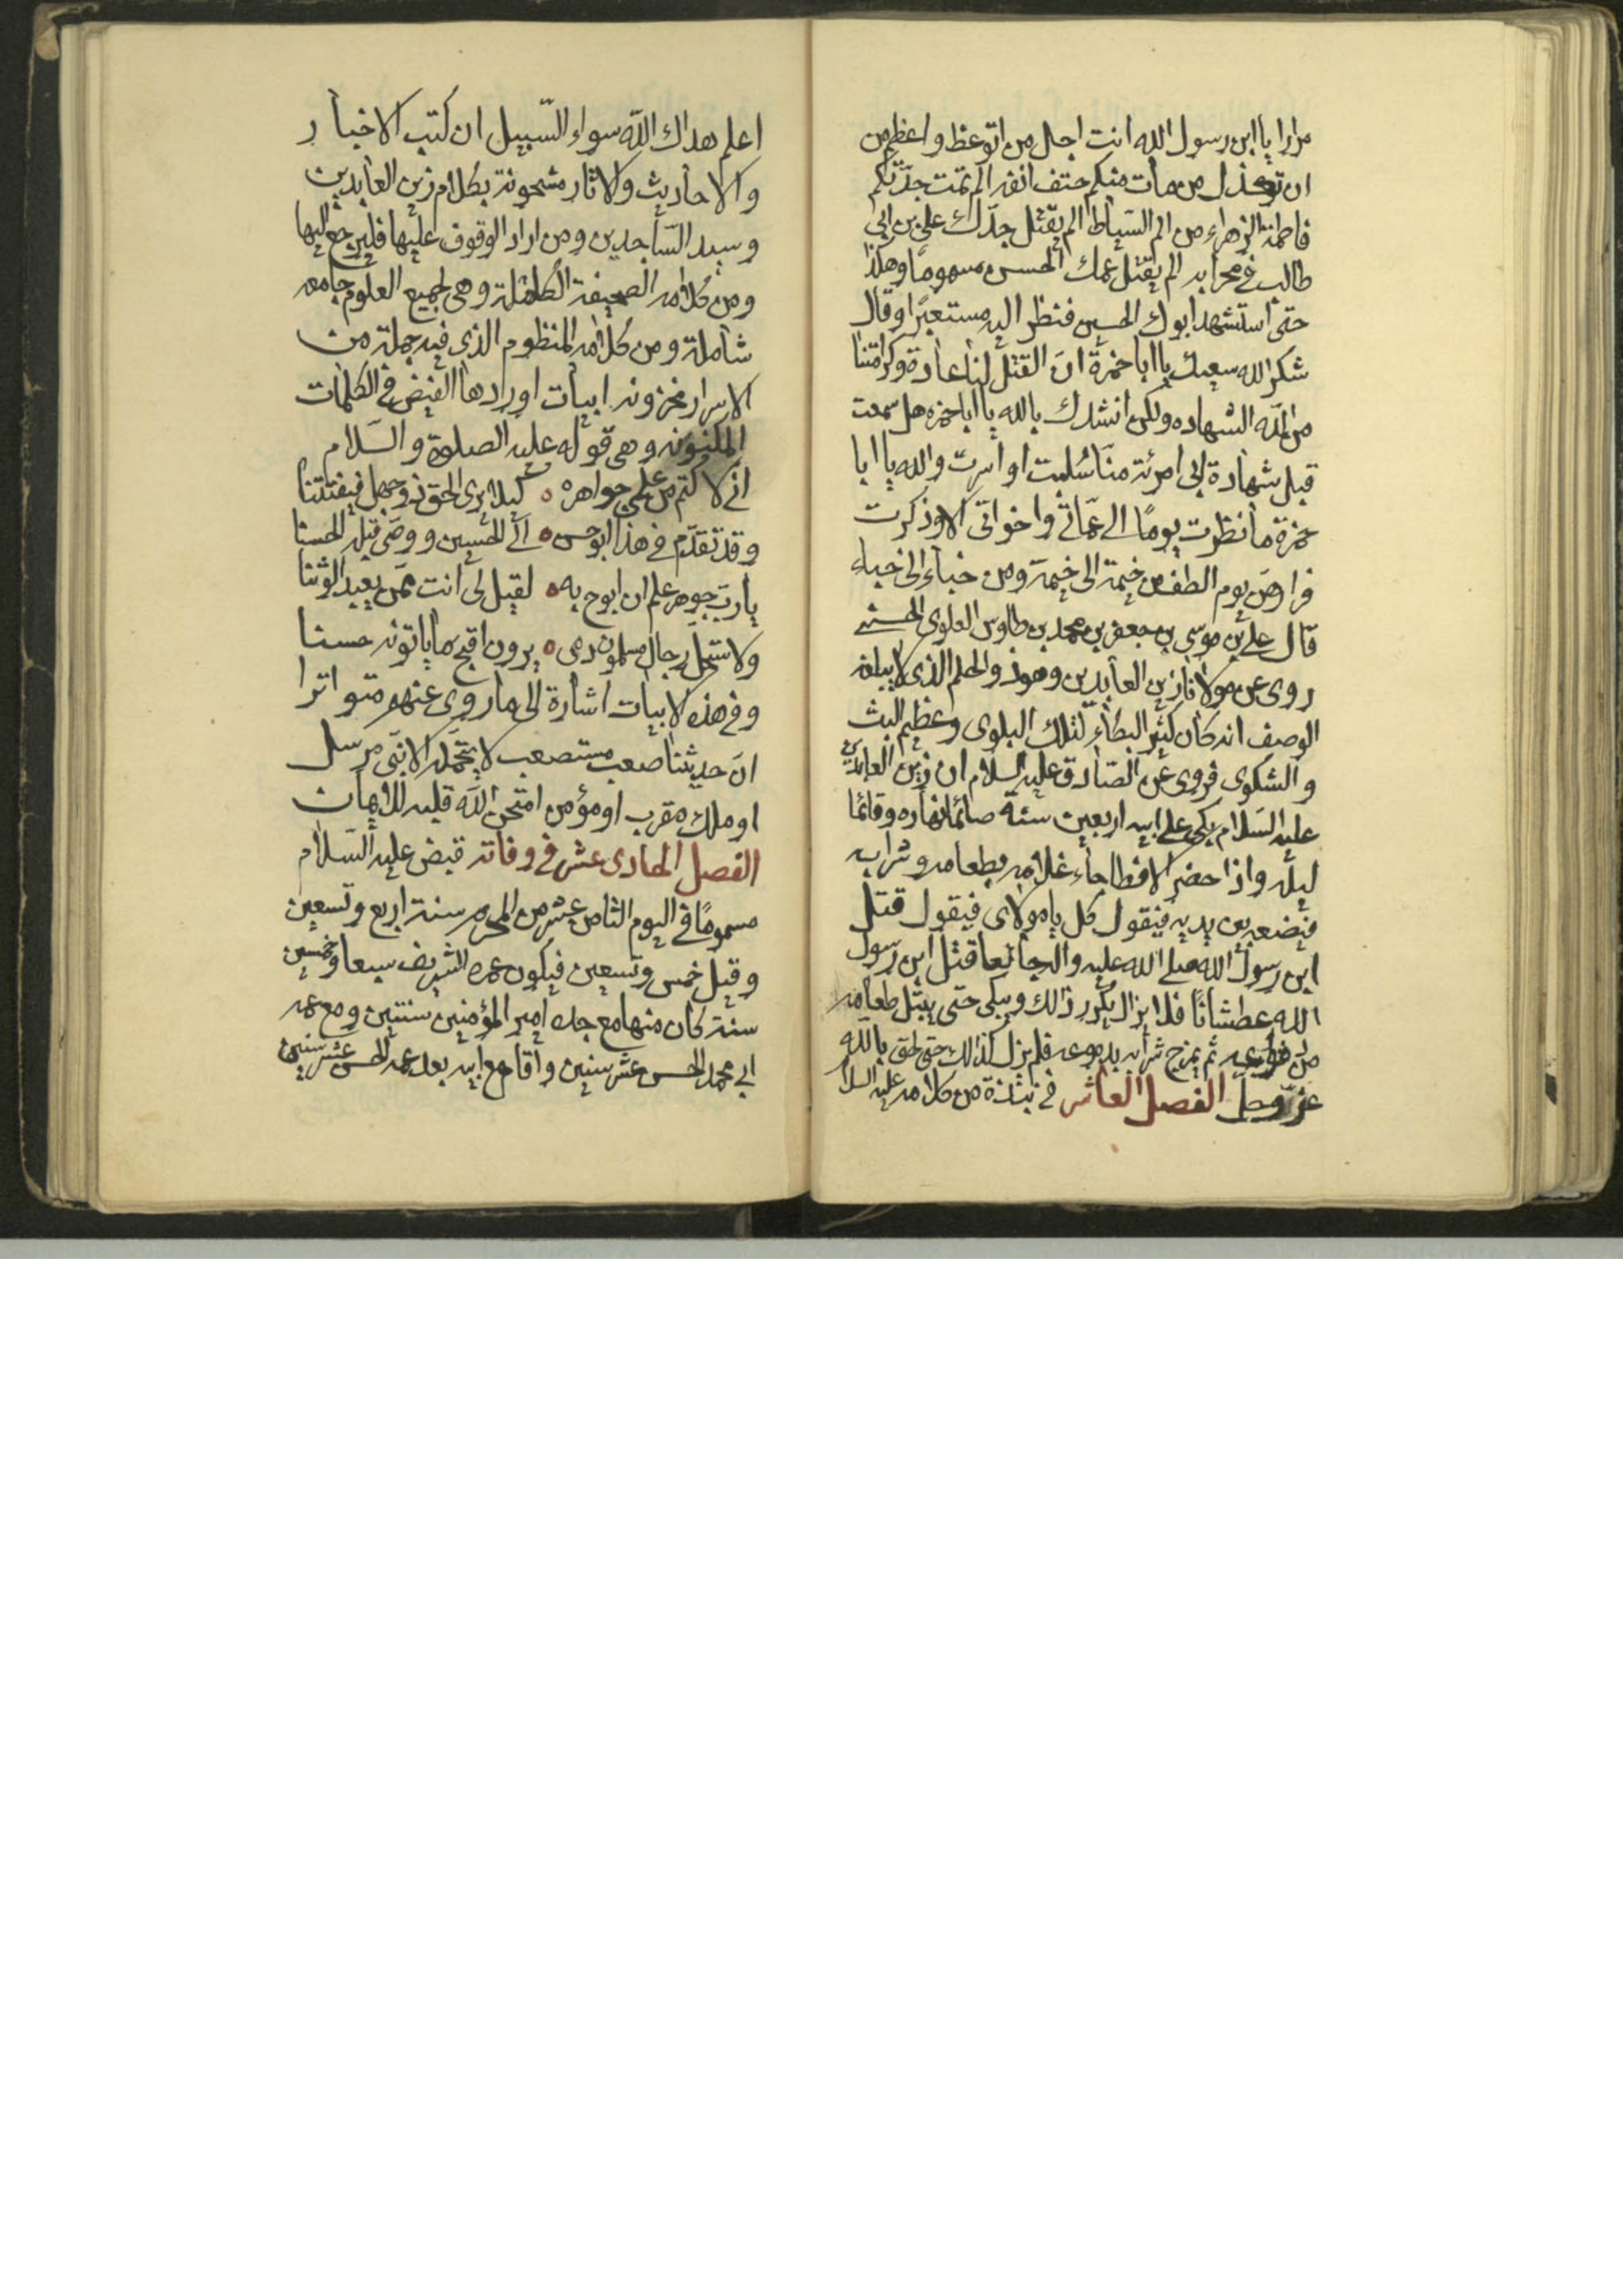 مرارا يا ابن رسول الله انت اجل من اتوعظ واعظم من
ان تعذل من مات منكم حتف انفه الم تمت جدتكم
فاطمة الزهراء من الم السياط الم يقتل جدك علي بن ابي
طالب في محرابه الم يقتل عمك الحسن مسموما وهكذا
حتى استشهد ابوك الحسين فنظر اليه مستعبرا وقال
شكر الله سعيك يا ابا حمزة ان القتل لنا عادة وكرامتنا
من الله الشهاده ولكن انشدك بالله يا ابا حمزه هل سمعت
قبل شهادة ابي امرئة منا سلبت او اسرت والله يا ابا
حمزة ما نظرت يوما الى عماتي واخواتي الا وذكرت
فراهن يوم الطف من خيمة الى خيمة ومن خباء الى خباء
قال علي بن موسى بن جعفر بن محمد بن طاوس العلوي الحسني
روى عن مولانا زين العابدين وهو ذو الحلم الذى لا يبلغه
الوصف انه كان كثير البكاء لتلك البلوى وعظيم البث
والشكوى فروى عن الصادق عليه السلام ان زين العابدين
عليه السلام بكى على ابيه اربعين سنة صائما نهاره وقائما
ليله واذا حضر الافطا جاء غلامه بطعامه وشرابه
فيضعه بين يديه فيقول كل يا مولاى فيقول قتل
ابن رسول الله صلى الله عليه واله جائعا قتل ابن رسول
الله عطشانا فلا يزال يكرر ذالك ويبكى حتى يبتل طعامه
من دموعه ثم يمزج شرابه بدموعه فلم يزل كذالك حتى لحق بالله
عز وجل الفصل العاشر في نبذة من كلامه عليه السلا
اعلم هداك الله سواء السبيل ان كتب الاخبار
والاحاديث والاثار مشحونة بكلام زين العابدين
وسيد الساجدين ومن اراد الوقوف عليها فليرجع اليها
ومن كلامه الصحيفة الكاملة وهى لجميع العلوم جامعه
شاملة ومن كلامه المنظوم الذى فيه جملة من
الاسرار مخزونه ابيات اوردها الفيض في الكلمات
المكنونه وهى قوله عليه الصلوة والسلام
اني لاكتم من علمي جواهره كيلا يرى الحق ذو جهل فيفتتنا
وقد تقدم في هذا ابو حسن الى الحسين ووصى قبله الحسنا
يا رب جوهر علم ان ابوح به لقيل لى انت ممن يعبد الوثنا
ولاستحل رجال مسلمون دمى يرون اقبح ما ياتونه حسنا
وفي هذه الابيات اشارة الى ما روى عنهم متواترا
ان حديثنا صعب مستصعب لا يتحمله الا نبى مرسل
او ملك مقرب او مؤمن امتحن الله قلبه للايمان
الفصل الحادى عشر في وفاته قبض عليه السلام
مسموما في اليوم الثامن عشر من المحرم سنة اربع وتسعين
وقيل خمس وتسعين فيكون عمره الشريف سبعا وخمسين
سنة كان منها مع جده امير المؤمنين سنتين ومع عمه
ابي محمد الحسن عشر سنين واقام مع ابيه بعد عمه الحسن عشر سنين